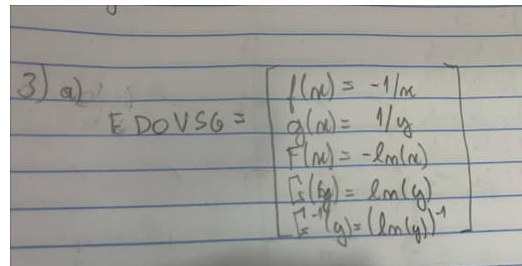 3) a)
EDOVSG =
f(x) = -1/x
g(x) = 1/y
F(x) = -ln(x)
G(y) = ln(y)
G⁻¹(y) = (ln(y))⁻¹